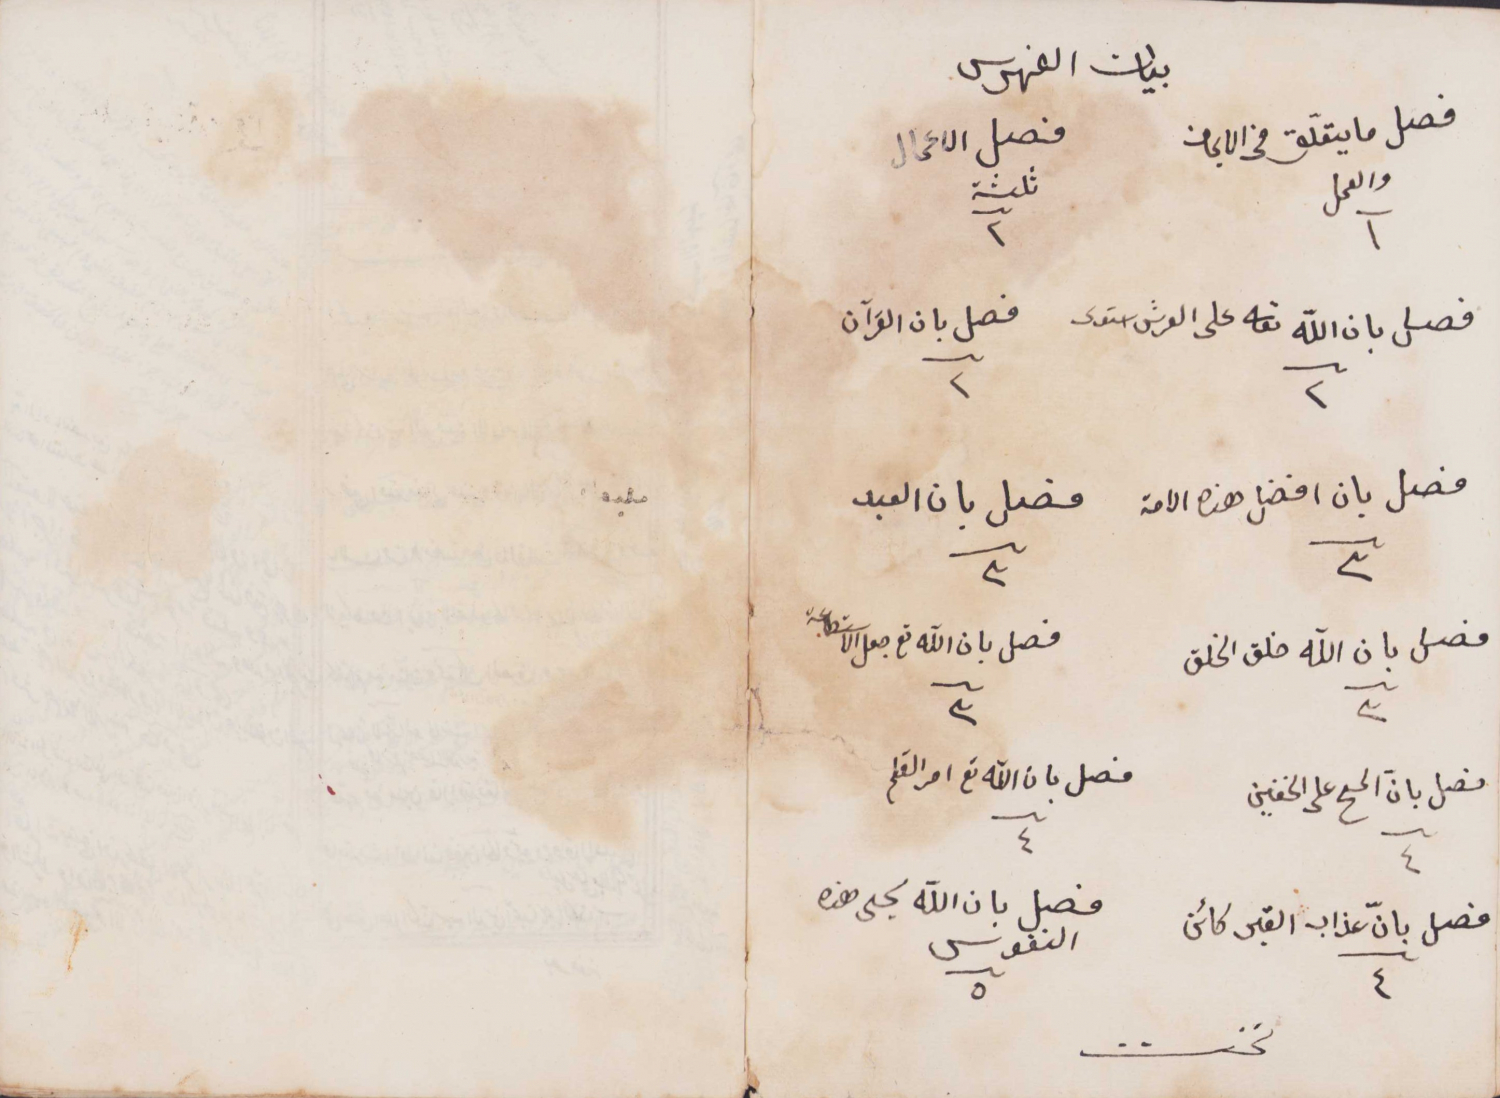 بيان الفهرس
فصل ما يتعلّق في الايمان
والعمل
١
فصل الاعمال
ثلثة
٢
فصل بان اللّه تعالى على العرش استوى
٢
فصل بان القرآن
٢
فصل بان افضل هذه الامة
٣
فصل بان العبد
٣
فصل بان اللّه خلق الخلق
٣
فصل بان اللّه تع جعل الاستطاعة
٣
فصل بانّ المسح على الخفين
٤
فصل بان اللّه تع امر القلم
٤
فصل بانّ عذاب القبر كائن
٤
فصل بان اللّه يحيى هذه
النفوس
٥
تمت